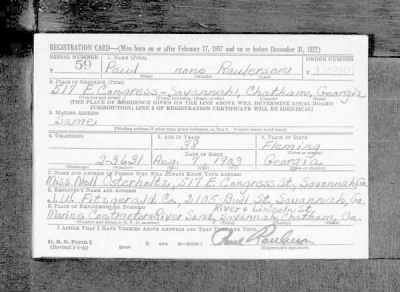 REGISTRATION CARD—(Men born on or after February 17, 1897 and on or before December 31, 1921)
SERIAL NUMBER 1. NAME (Print) ORDER NUMBER
T 59 Paul none Raulerson
(First) (Middle) (Last)
2. PLACE OF RESIDENCE (Print)
517 E. Congress - Savannah, Chatham, Georgia
[THE PLACE OF RESIDENCE GIVEN ON THE LINE ABOVE WILL DETERMINE LOCAL BOARD
JURISDICTION; LINE 2 OF REGISTRATION CERTIFICATE WILL BE IDENTICAL]
3. MAILING ADDRESS
Same
[Mailing address if other than place indicated on line 2. If same insert word same]
4. TELEPHONE 5. AGE IN YEARS 6. PLACE OF BIRTH
38 Fleming
DATE OF BIRTH (Town or county)
2-3631 Aug. 1903 Georgia
(Exchange) (Number) (Mo.) (Day) (Yr.) (State or country)
7. NAME AND ADDRESS OF PERSON WHO WILL ALWAYS KNOW YOUR ADDRESS
Miss Nell Osterholtz, 517 E Congress St, Savannah, Ga
8. EMPLOYER'S NAME AND ADDRESS
J. W. Fitzgerald Co, 2105 Bull St, Savannah, Ga.
9. PLACE OF EMPLOYMENT OR BUSINESS River & Lincoln St,
Marine Contractors River Sand, Savannah, Chatham, Ga.
I AFFIRM THAT I HAVE VERIFIED ABOVE ANSWERS AND THAT THEY ARE TRUE.
D. S. S. Form 1
(Revised 1-1-42) (over) Paul Raulerson
(Registrant's signature)